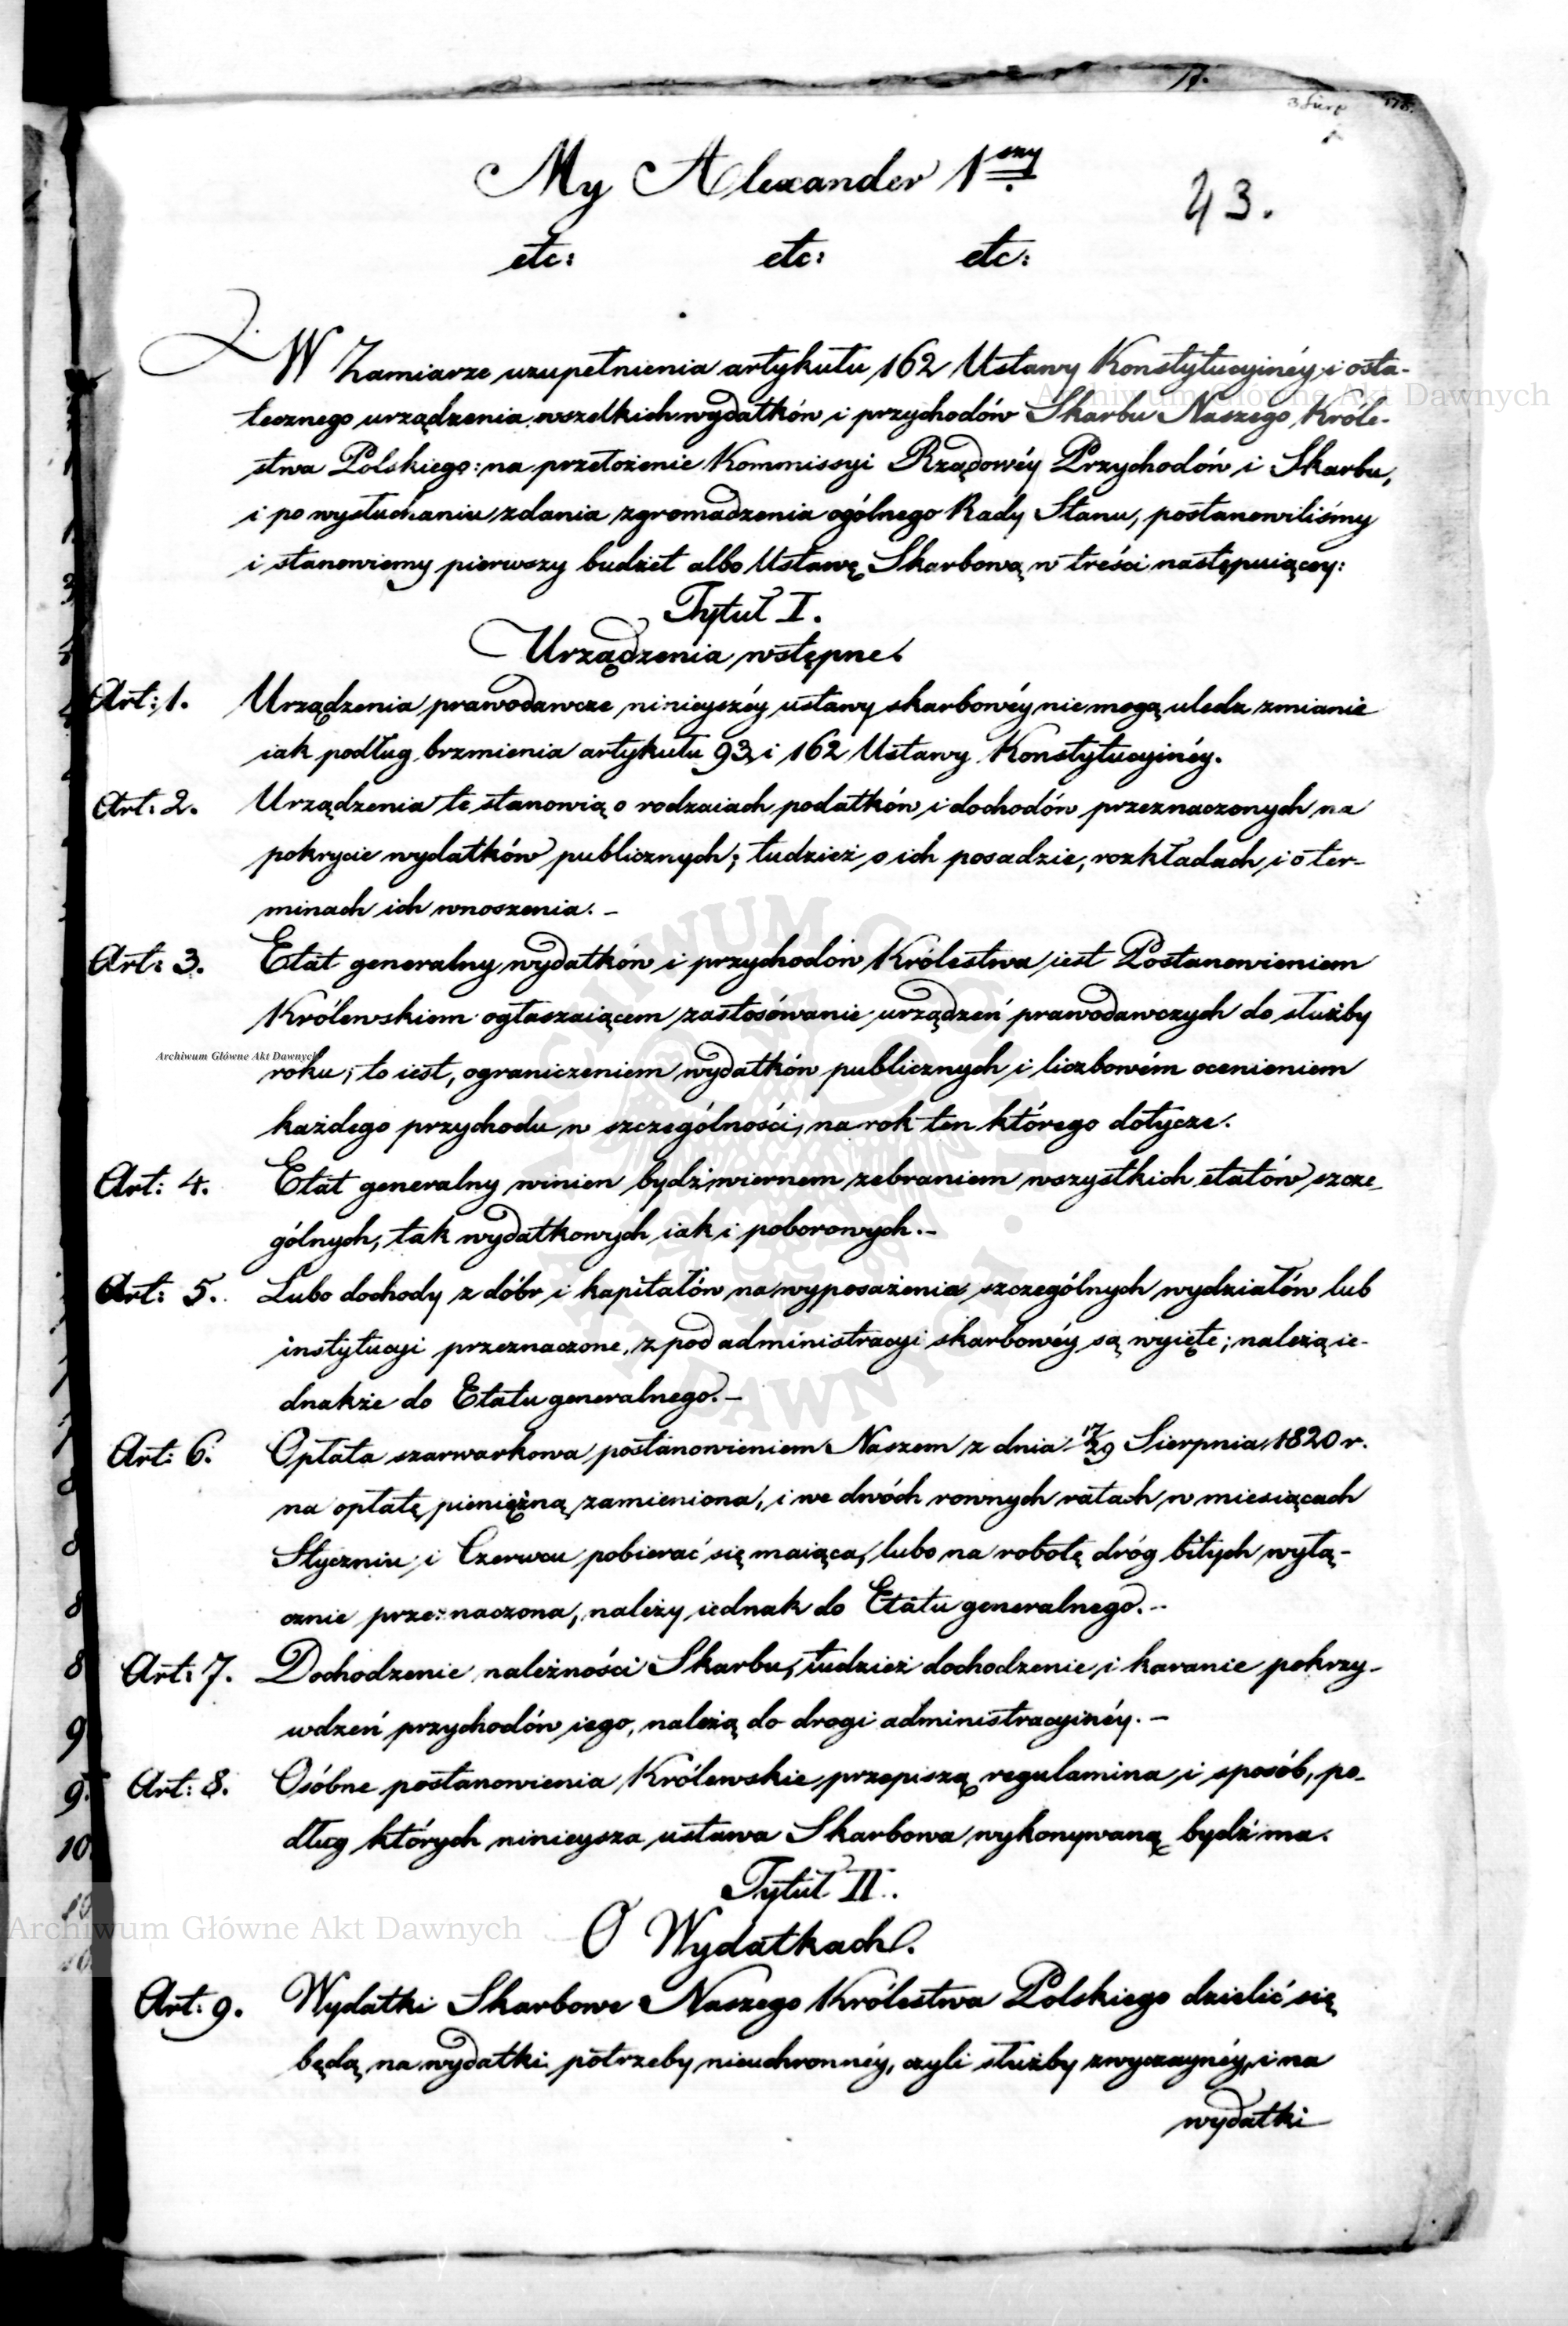 17.
3 Sierp
My Alexander 1szy
43.
etc: etc: etc:
W Zamiarze uzupełnienia artykułu 162 Ustawy Konstytucyinéy i osta-
tecznego urządzenia wszelkich wydatków i przychodów Skarbu Naszego Króle-
stwa Polskiego: na przełożenie Kommissyi Rządowéy Przychodów i Skarbu,
i po wysłuchaniu zdania zgromadzenia ogólnego Rady Stanu, postanowiliśmy
i stanowiemy pierwszy budżet albo Ustawę Skarbową w treści następuiącey:
Tytuł I.
Urządzenia wstępne.
Art: 1. Urządzenia prawodawcze ninieyszéy ustawy skarbowéy nie mogą uledz zmianie
iak podług brzmienia artykułu 93 i 162 Ustawy Konstytucyinéy.
Art: 2. Urządzenia te stanowią o rodzaiach podatków i dochodów przeznaczonych na
pokrycie wydatków publicznych; tudzież o ich posadzie, rozkładach i o ter-
minach ich wnoszenia. -
Art: 3. Etat generalny wydatków i przychodów Królestwa iest Postanowieniem
Królewskiem ogłaszaiącem zastosówanie urządzeń prawodawczych do służby
roku; to iest, ograniczeniem wydatków publicznych i liczbowém ocenieniem
każdego przychodu w szczególności, na rok ten którego dotycze.
Art: 4. Etat generalny winien bydź wiernem zebraniem wszystkich etatów szcze-
gólnych, tak wydatkowych iak i poborowych. -
Art: 5. Lubo dochody z dóbr i kapitałów na wyposażenia szczególnych wydziałów lub
instytucyi przeznaczone, z pod administracyi skarbowéy są wyięte; należą ie-
dnakże do Etatu generalnego. -
Art: 6. Opłata szarwarkowa postanowieniem Naszem z dnia 17/29 Sierpnia 1820 r.
na opłatę pieniężną zamieniona, i we dwóch rownych ratach w miesiącach
Styczniu i Czerwcu pobierać się maiąca, lubo na robotę dróg bitych wyłą-
cznie przeznaczona, należy iednak do Etatu generalnego. -
Art: 7. Dochodzenie należności Skarbu, tudzież dochodzenie i karanie pokrzy-
wdzeń przychodów iego, należą do drogi administracyinéy. -
Art: 8. Osóbne postanowienia Królewskie przepiszą regulamina i sposób, po-
dług których ninieysza ustawa Skarbowa wykonywaną bydź ma.
Tytuł II.
O Wydatkach.
Art: 9. Wydatki Skarbowe Naszego Królestwa Polskiego dzielić się
będą na wydatki potrzeby nieuchronnéy, czyli służby zwyczaynéy, i na
wydatki
Archiwum Główne Akt Dawnych
Archiwum Główne Akt Dawnych
Archiwum Główne Akt Dawnych
8
9
9.
10.